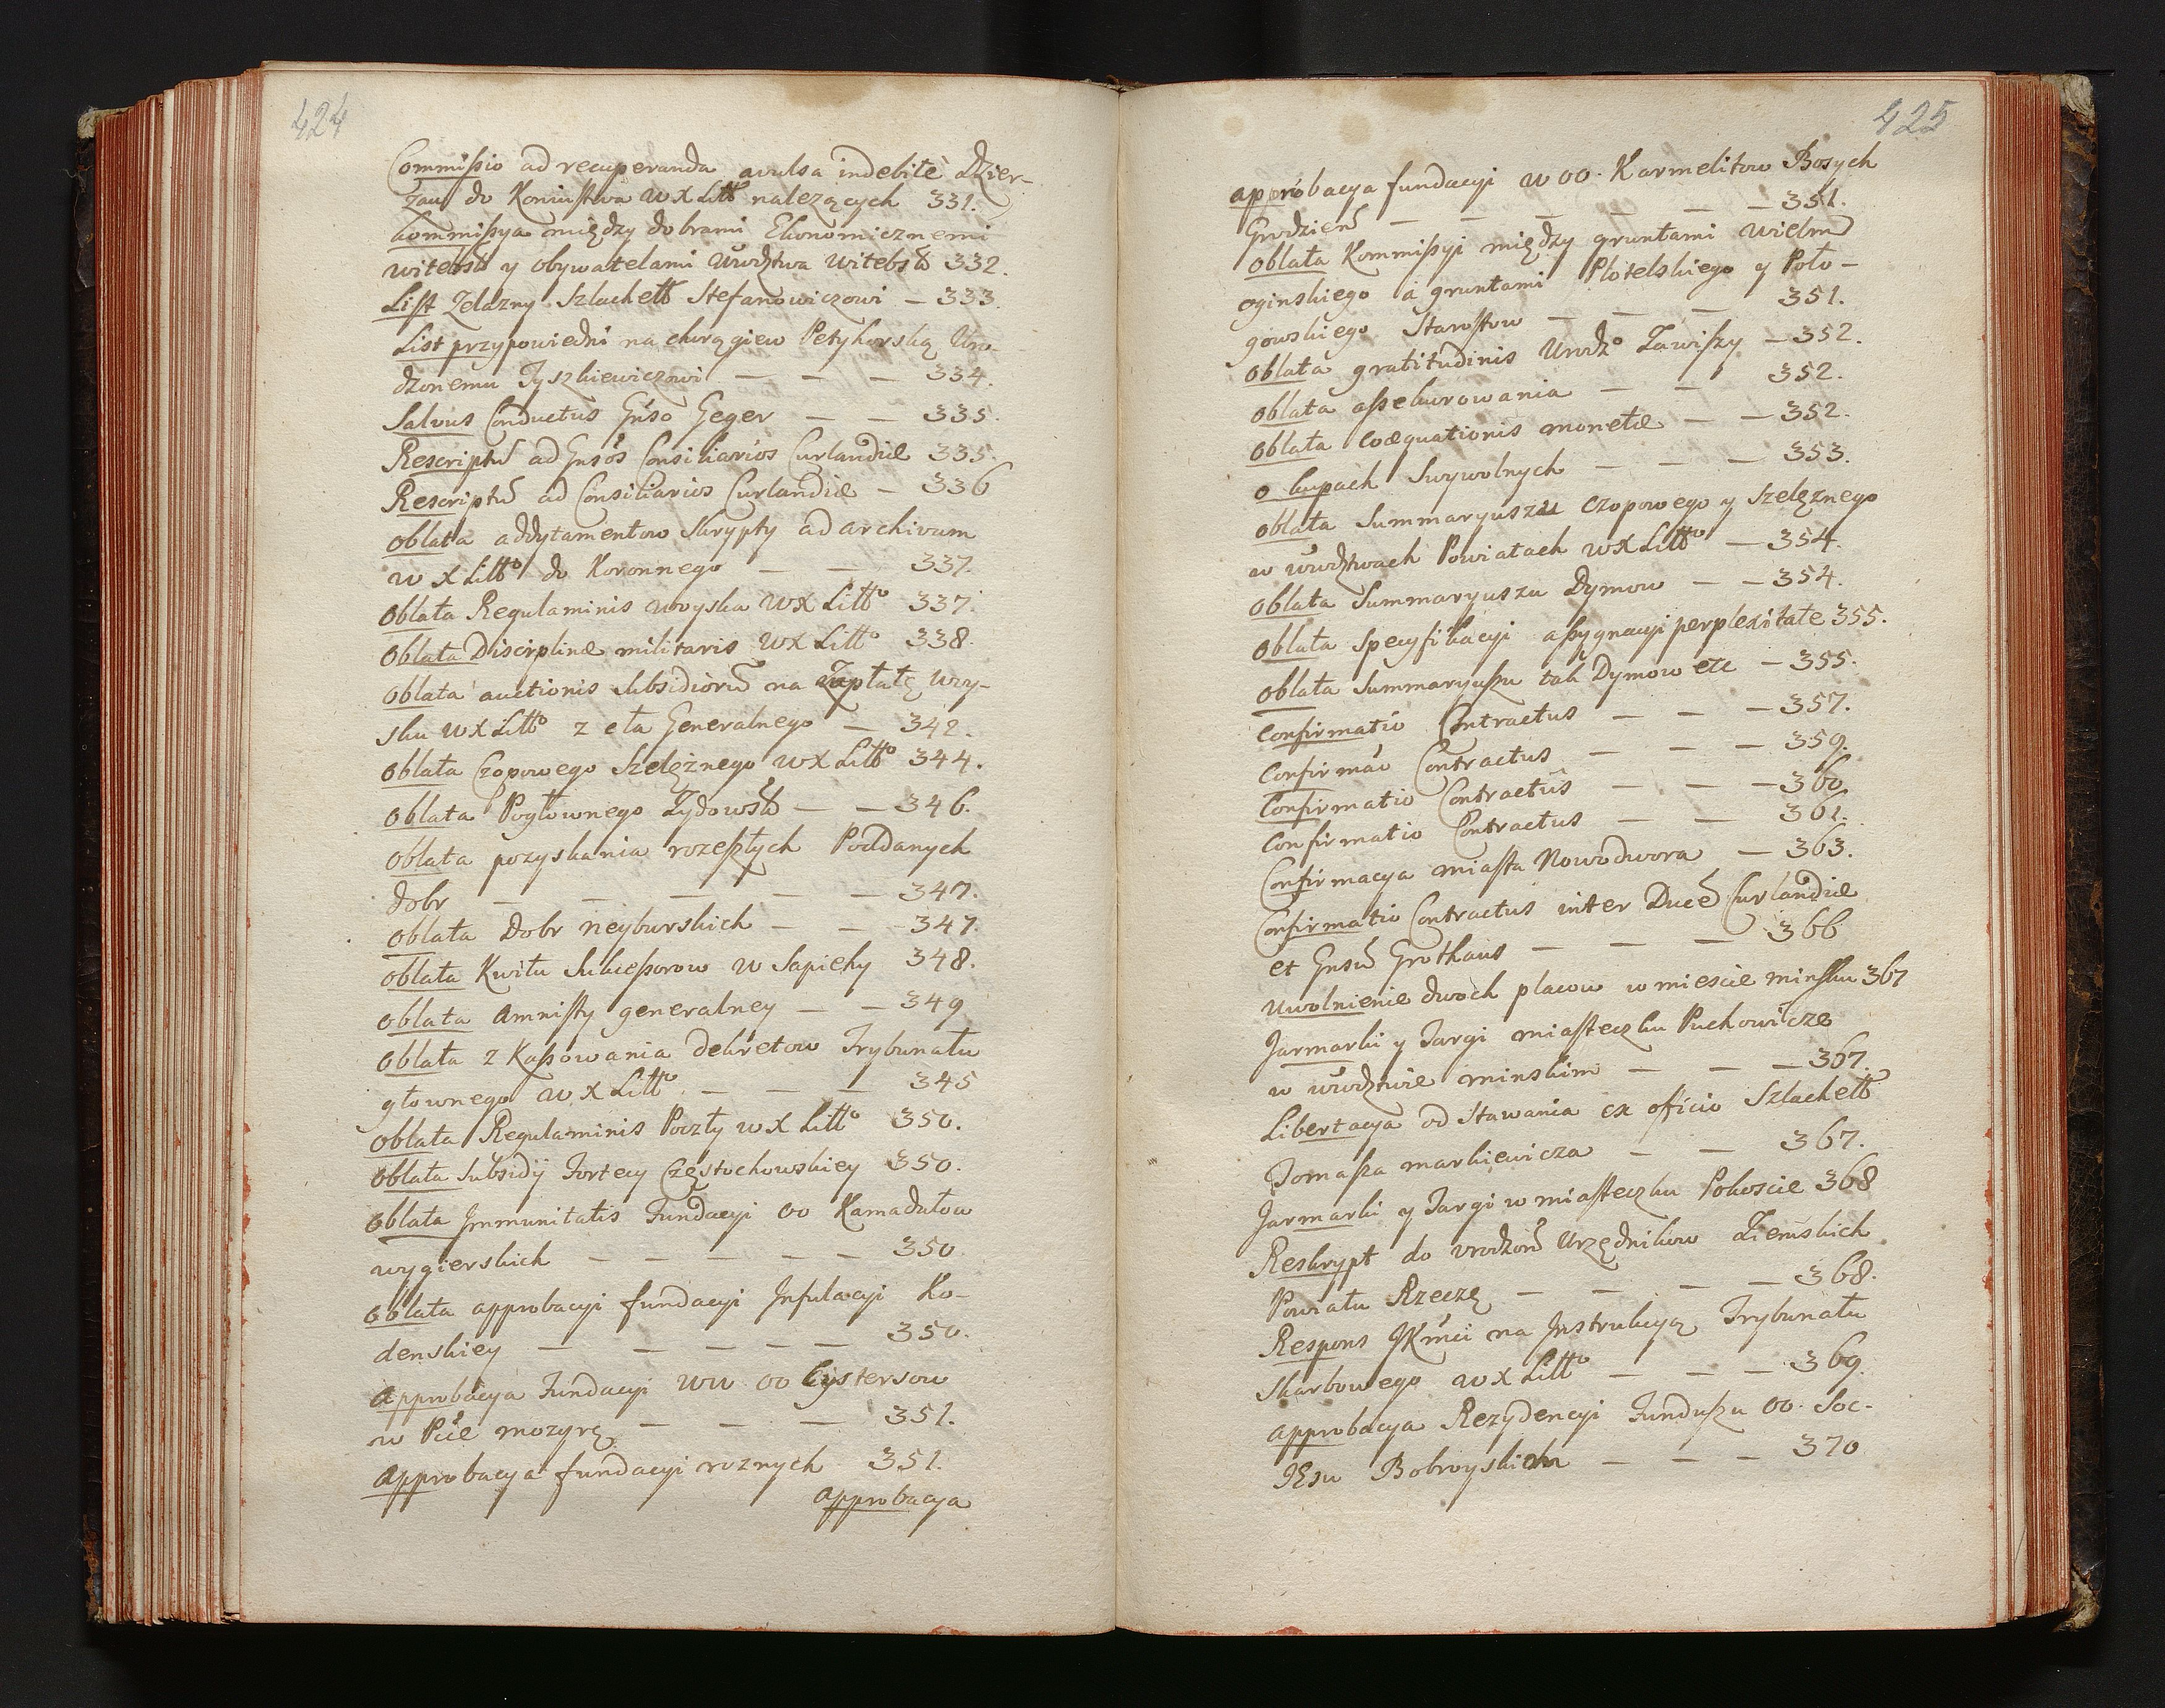 424
Commissio ad recuperanda avulsa indebitè Dzier-
żaw do Koniustwa W X Litt należących 331.
Kommissya między dobrami Ekonomicznemi
witebsk y obywatelami Wwdztwa Witebsk 332.
List Zelazny Szlachett Stefanowiczowi — 333.
List przypowiedni na chorągiew Petyhorską Uro-
dzonemu Tyszkiewiczowi — — — 334.
Salvus Conductus Gnso Geger — — 335.
Rescriptū ad Gnsos Consiliarios Curlandiæ 335.
Rescriptū ad Consiliarios Curlandiæ — 336
Oblata addytamentow Skrypty ad archivum
w X Litto do Koronnego — — 337.
Oblata Regulaminis woyska WX Litto 337.
Oblata Disciplinæ militaris WX Litto 338.
Oblata auctionis Subsidiorū na Zapłatę woy-
sku WX Litto z cła Generalnego — 342.
Oblata Czopowego Szelężnego WX Litto 344.
Oblata Pogłownego Zydowsk — — 346.
Oblata pozyskania rozeszłych Poddanych
dobr — — — — — 347.
Oblata Dobr neyburskich — — 347.
Oblata Kwitu Sukcessorow W Sapiehy 348.
Oblata Amnisty generalney — — 349
Oblata z Kassowania dekretow Trybunału
głownego W X Litto — — — 345
Oblata Regulaminis Poczty w X Litto 350.
Oblata Subsidÿ Fortecy Częstochowskiey 350.
Oblata Immunitatis Fundacyi OO Kamadułow
wygierskich — — — — — 350
Oblata approbacyi fundacyi Infułacyi Ko-
denskiey — — — — — 350.
Approbacya Fundacyi WW OO Cystersow
w Pcie mozyrz — — — 351.
Approbacya fundacyi roznych 351.
Approbacya
425
approbacya fundacyi W OO. Karmelitow Bosych
Grodzień — — — — — — 351.
Oblata Kommissyi między gruntami Wielm
oginskiego a gruntami Płotelskiego y Poło-
gowskiego Starostow — — — 351.
Oblata gratitudinis Urodzo Zawiszy — 352.
Oblata assekurowania — — 352.
Oblata coæquationis monetæ — — 352.
o kupach Swywolnych — — — 353.
Oblata Summaryuszu czopowego y szelężnego
w wwdztwach Powiatach WX Litto — 354.
Oblata Summaryuszu Dymow — — 354.
Oblata specyfikacyi assygnacyi perplexitate 355.
Oblata Summaryuszu tak Dymow etc — 355.
Confirmatio Contractus — — — 357.
Confirmao Contractus — — — 359.
Confirmatio Contractus — — — 360.
Confirmatio Contractus — — 361.
Confirmacya miasta Nowodwora — 363.
Confirmatio Contractus inter Ducē Curlandiæ
et Gnsū Grothaus — — — 366
Uwolnienie dwoch placow w miescie minsku 367
Jarmarki y Targi miasteczku Puchowicze
w wwdztwie minskim — — — 367.
Libertacya od Stawania ex officio Szlachett
Tomasza markiewicza — — 367.
Jarmarki y Targi w miasteczku Pohoscie 368
Reskrypt do urodzon Urzędnikow Ziemskich
Powiatu Rzeczę — — — — 368.
Respons JKmci na Instrukcyą Trybunału
Skarbowego W X Litto — — — 369.
Approbacya Rezydencyi Funduszu OO. Soc-
JEsu Bobroyskich — — — 370